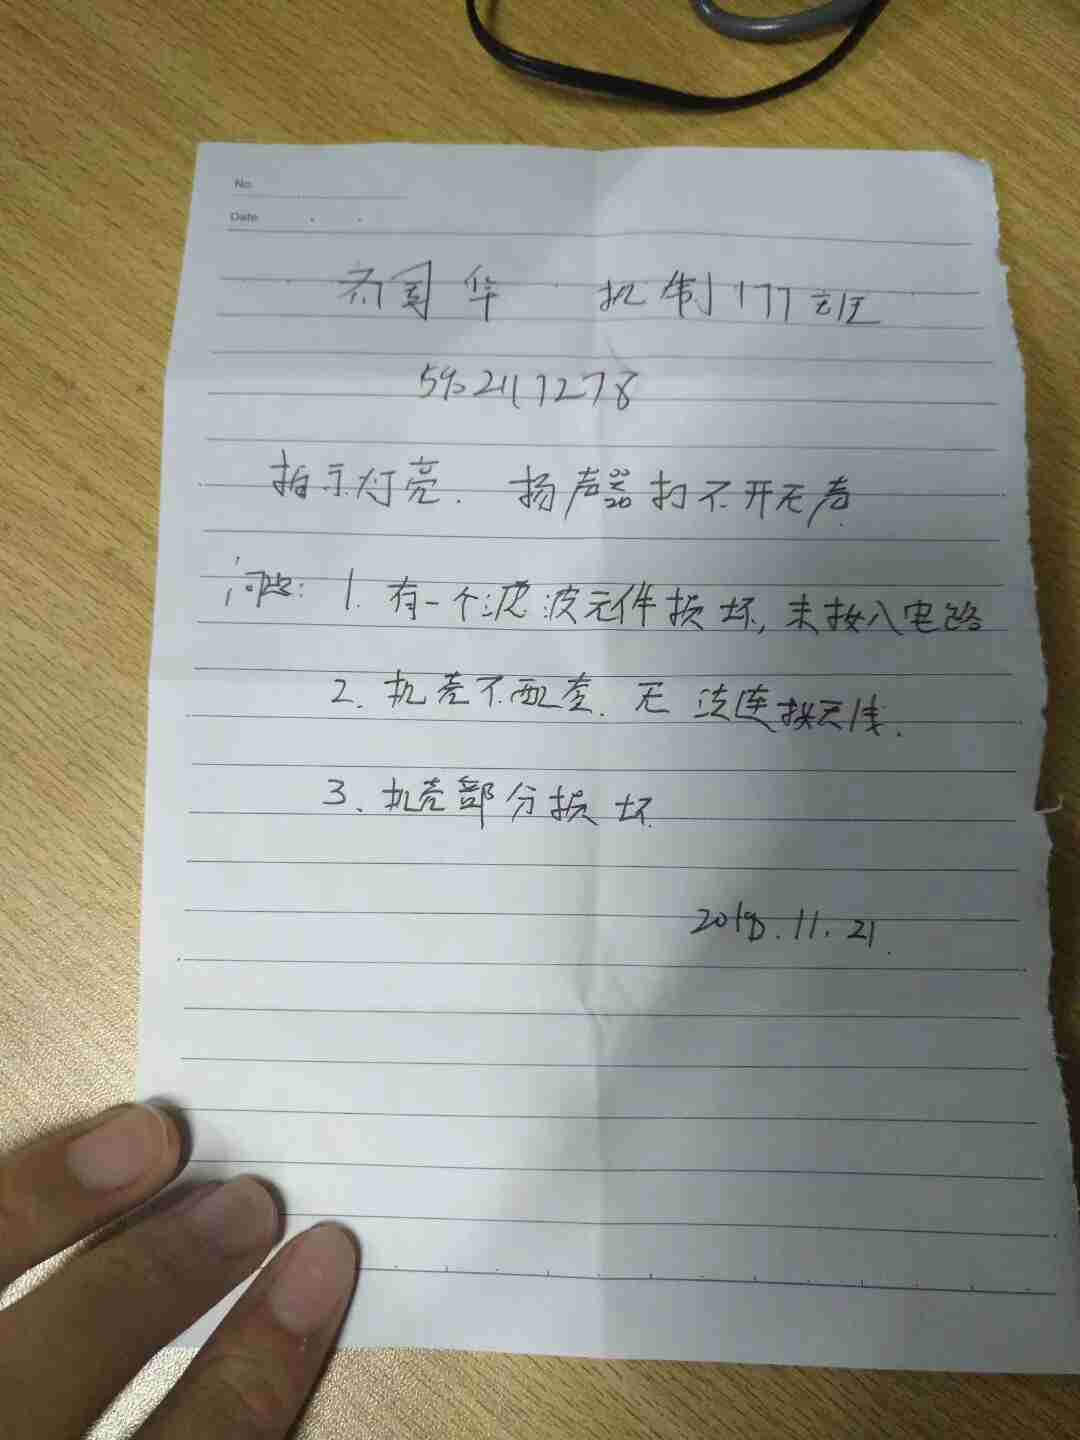 No.
Date
齐国华 机制177班
5902117278
指示灯亮. 扬声器打不开无声
问题: 1. 有一个滤波元件损坏, 未接入电路
2. 机壳不配套. 无法连接天线.
3. 机壳部分损坏.
2018.11.21.